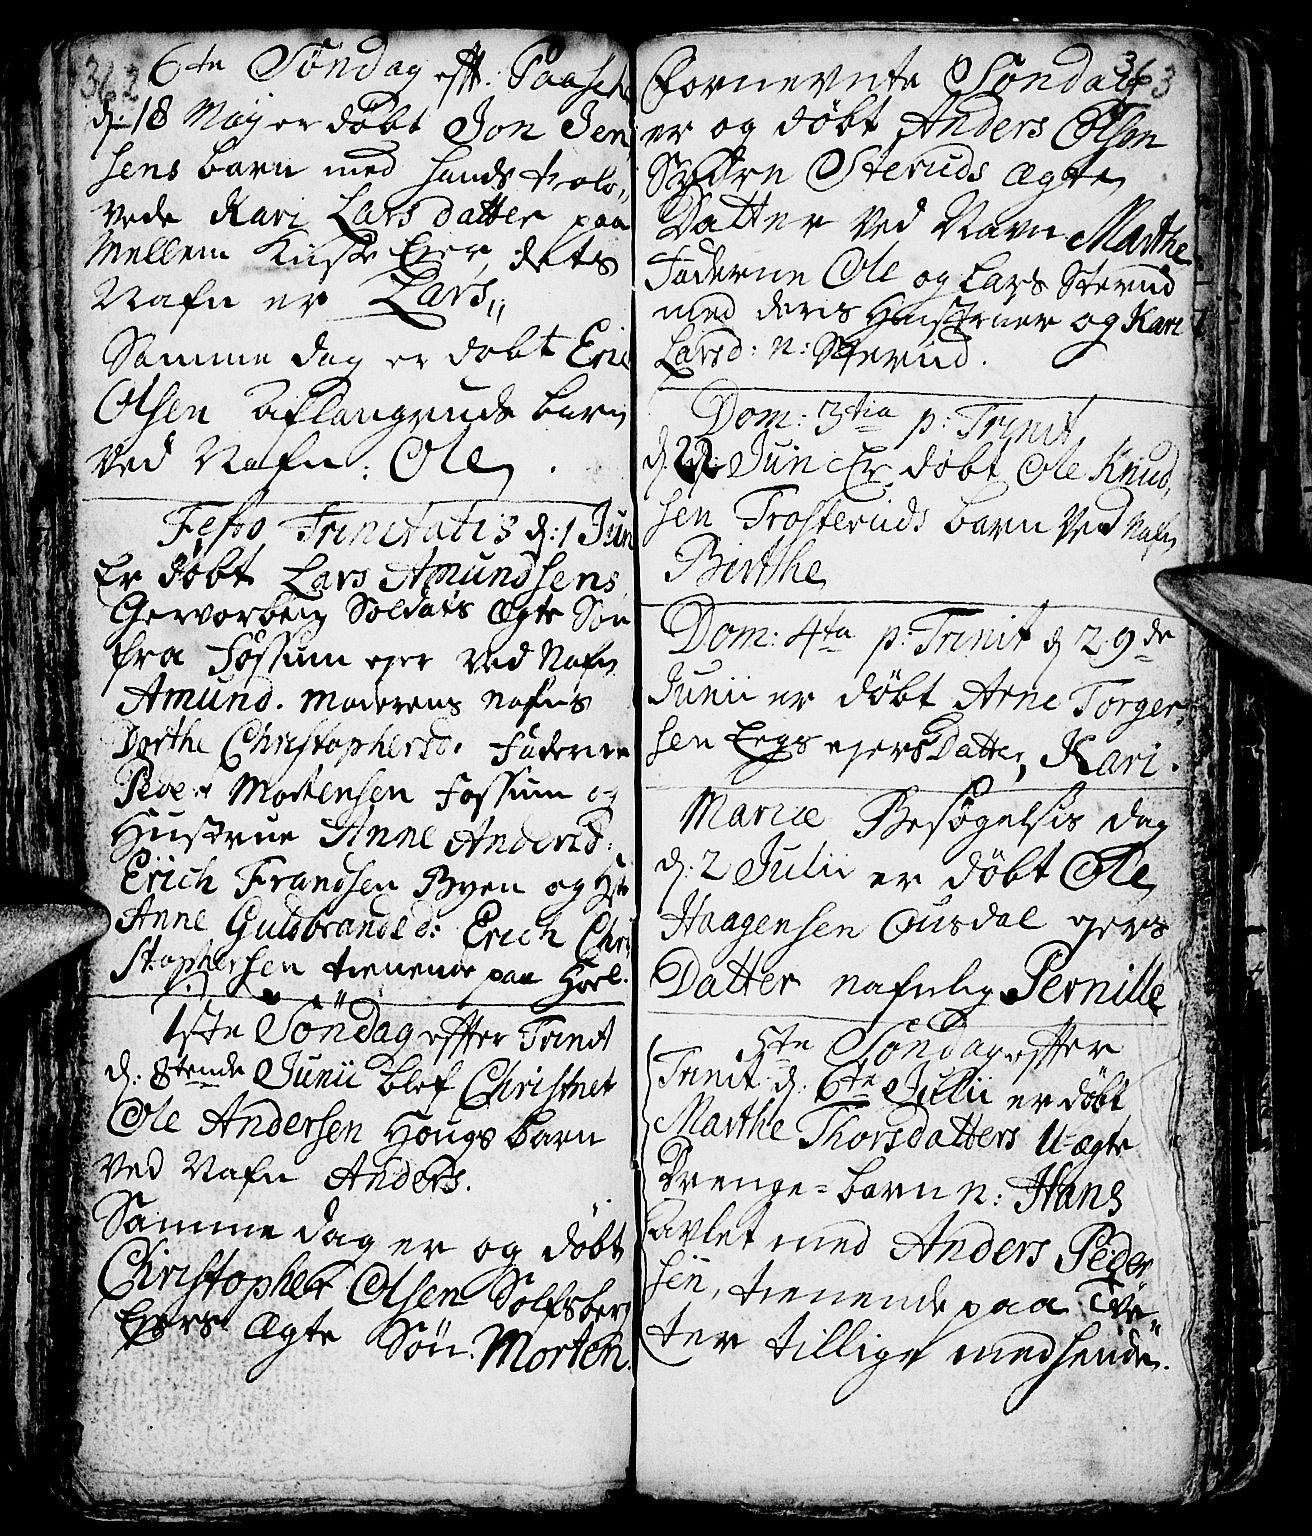 362
6te Söndag eft: Paasche
d: 18 Maj er döbt Jon Jen
sens barn med hands trolo„
vede Kari Lars datter paa
Mellem Kirke Eier, dets
Nafn er Lars„
Samme dag er döbt Eric
Olsen Aflangruds barn
ved Nafn: Ole.
Festo Trinitatis d: 1 Jun
Er döbt Lars Amundsens
Gevorben Soldats Ægte Sön
fra Fossum ejer ved Nafn
Amund. Moderens nafns
Dorthe Christophersd: Faderne
Peder Mortensen Fossum og
Hustrue Anne Andersd:
Erich Frandsen Byen og Hstr
Anne Gulbrandsd: Erich Chri
stophersen tienende paa Hoel.
1ste Söndag effter Trinit
d: 8tende Junii blef Christnet
Ole Andersen Hougs barn
ved Nafn Anders.
Samme dag er og döbt
Christopher Olsen Solfsberg
Ejers Ægte Sön: Morten.
363
Fornevnte Söndag
er og döbt Anders Olsen
Steruds ægte
Datter ved Navn Marthe
Faderne Ole og Lars Sterud
med deris Hustruer og Kari
Larsd: n: Sterud.
Dom: 3tia p: Trinit,
d. 22 Jun Er döbt Ole Knud„
sen Trosteruds barn ved Nafn
Birthe
Dom: 4ta p: Trinit d 29de
Junii er döbt Arne Torger„
sen Eegs ejers Datter, Kari.
Mariæ Besøgelsis dag
d: 2 Julii er döbt Ole
Haagensen Ousdal ejers
Datter nafnlig Pernille
5te Söndag effter
Trinit d. 6te Julii er döbt
Marthe Thorsdatters U=ægte
Drenge=barn n: Hans
avlet med Anders Peder
sen, tienende paa Tve„
ter tillige med hende.